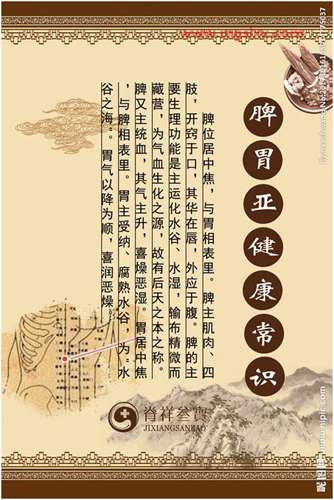 脾胃亚健康常识
脾位居中焦，与胃相表里。脾主肌肉、四
肢，开窍于口，其华在唇，外应于腹。脾的主
要生理功能是主运化水谷、水湿，输布精微而
藏营，为气血生化之源，故有后天之本之称。
脾又主统血，其气主升，喜燥恶湿。胃居中焦
，与脾相表里。胃主受纳、腐熟水谷，为“水
谷之海”。胃气以降为顺，喜润恶燥。
脊祥叁寶
JIXIANGSANBAO